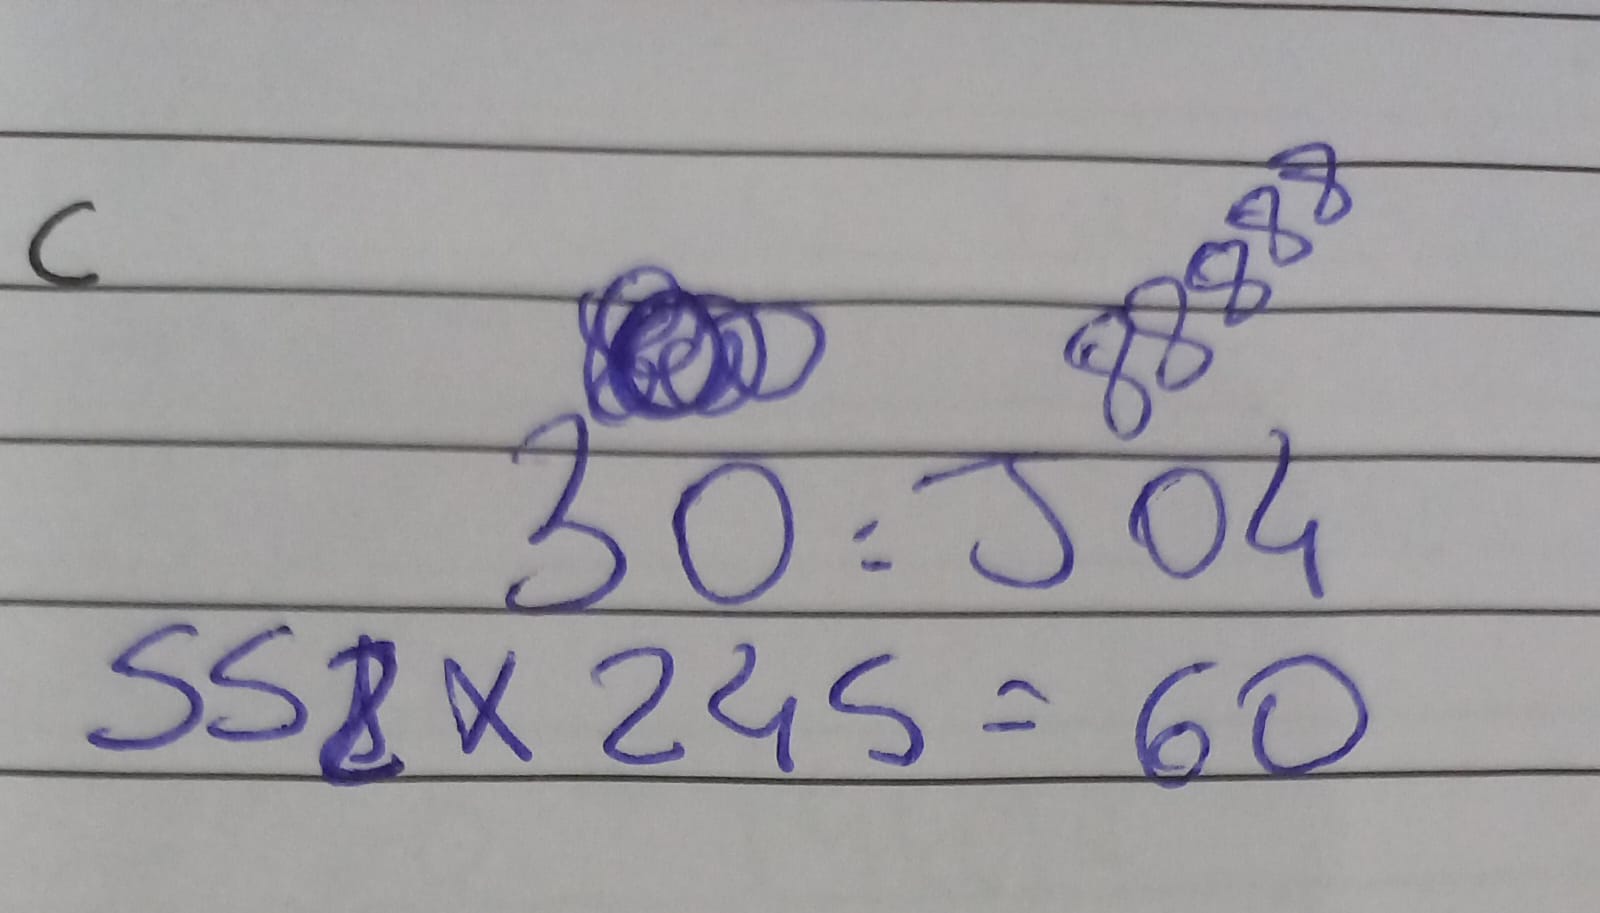 C
88888
30=504
55 x 245 = 60